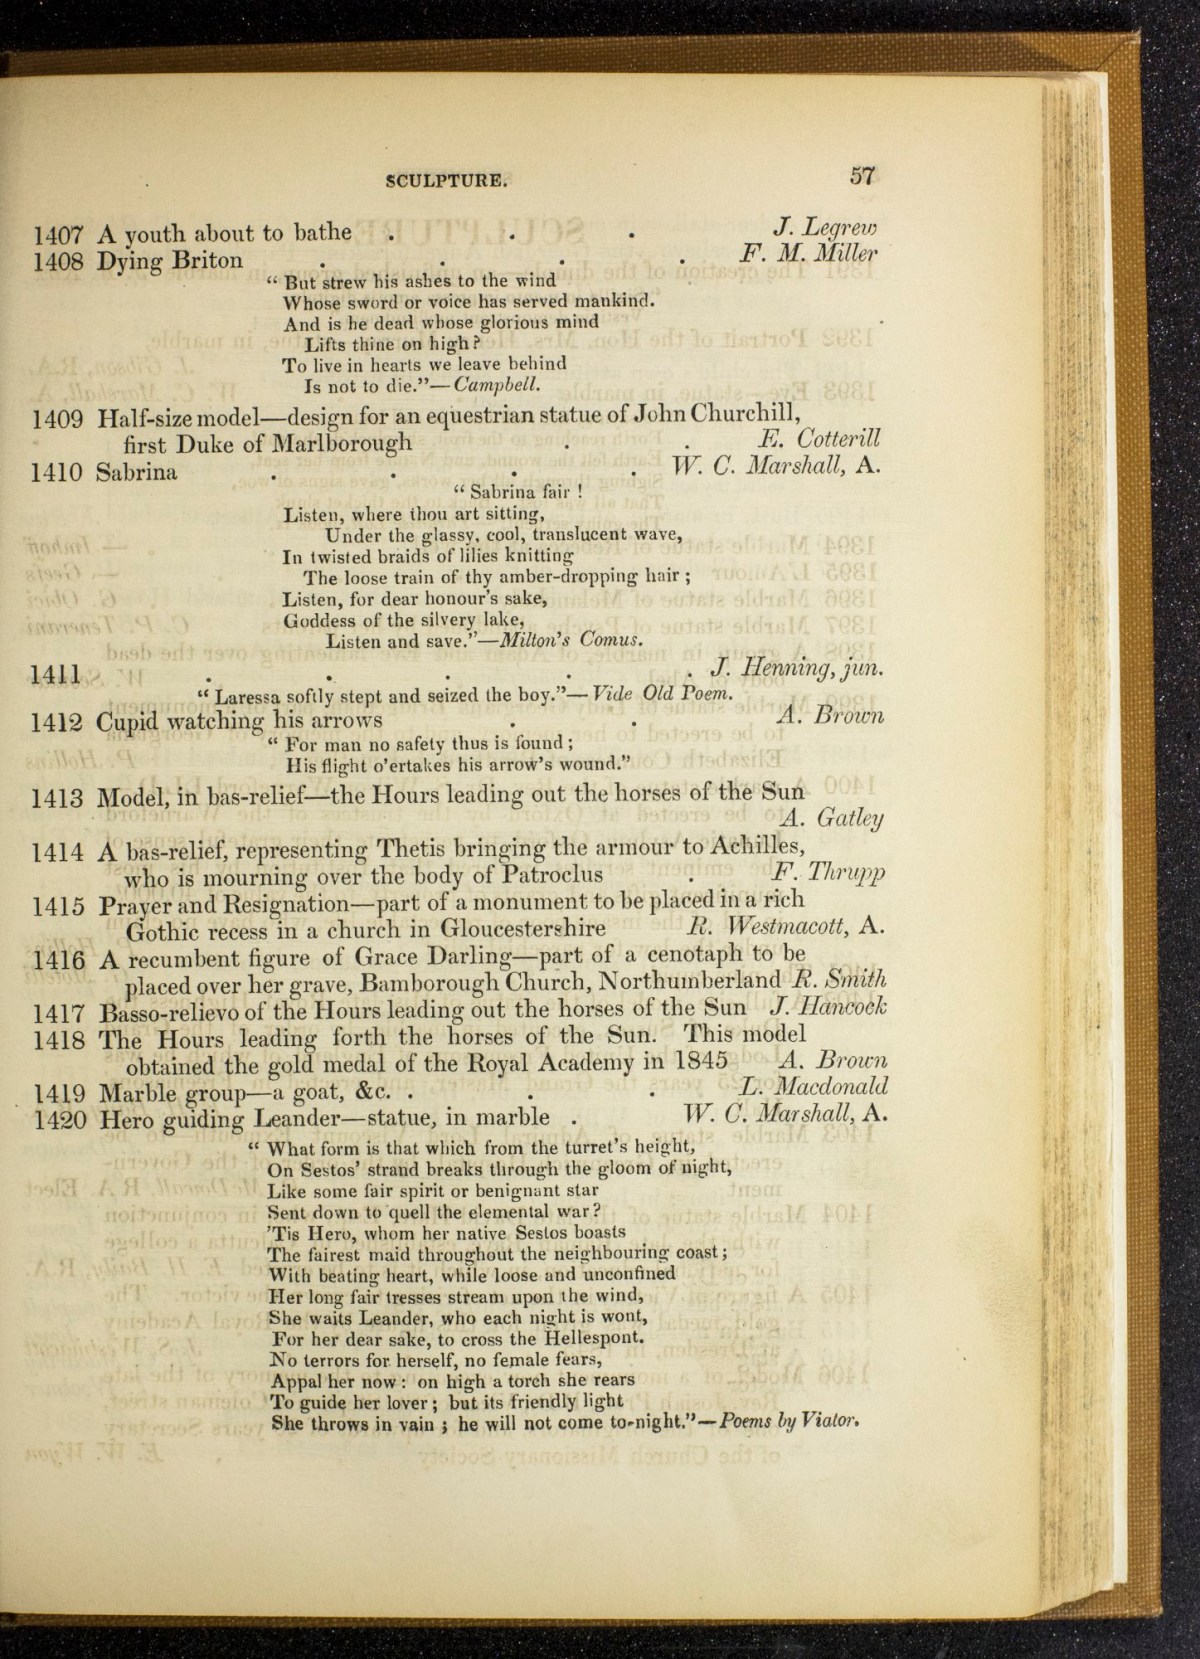 SCULPTURE. 57
1407 A youth about to bathe . . . J. Legrew
1408 Dying Briton . . . . F. M. Miller
“ But strew his ashes to the wind
Whose sword or voice has served mankind.
And is he dead whose glorious mind
Lifts thine on high?
To live in hearts we leave behind
Is not to die.”—Campbell.
1409 Half-size model—design for an equestrian statue of John Churchill,
first Duke of Marlborough . . E. Cotterill
1410 Sabrina . . . . W. C. Marshall, A.
“ Sabrina fair !
Listen, where thou art sitting,
Under the glassy, cool, translucent wave,
In twisted braids of lilies knitting
The loose train of thy amber-dropping hair ;
Listen, for dear honour's sake,
Goddess of the silvery lake,
Listen and save.”—Milton's Comus.
1411 . . . . . J. Henning, jun.
“ Laressa softly stept and seized the boy.”—Vide Old Poem.
1412 Cupid watching his arrows . . A. Brown
“ For man no safety thus is found ;
His flight o'ertakes his arrow's wound.”
1413 Model, in bas-relief—the Hours leading out the horses of the Sun
A. Gatley
1414 A bas-relief, representing Thetis bringing the armour to Achilles,
who is mourning over the body of Patroclus . F. Thrupp
1415 Prayer and Resignation—part of a monument to be placed in a rich
Gothic recess in a church in Gloucestershire R. Westmacott, A.
1416 A recumbent figure of Grace Darling—part of a cenotaph to be
placed over her grave, Bamborough Church, Northumberland R. Smith
1417 Basso-relievo of the Hours leading out the horses of the Sun J. Hancock
1418 The Hours leading forth the horses of the Sun. This model
obtained the gold medal of the Royal Academy in 1845 A. Brown
1419 Marble group—a goat, &c. . . . L. Macdonald
1420 Hero guiding Leander—statue, in marble . W. C. Marshall, A.
“ What form is that which from the turret's height,
On Sestos' strand breaks through the gloom of night,
Like some fair spirit or benignant star
Sent down to quell the elemental war?
'Tis Hero, whom her native Sestos boasts
The fairest maid throughout the neighbouring coast;
With beating heart, while loose and unconfined
Her long fair tresses stream upon the wind,
She waits Leander, who each night is wont,
For her dear sake, to cross the Hellespont.
No terrors for herself, no female fears,
Appal her now : on high a torch she rears
To guide her lover ; but its friendly light
She throws in vain ; he will not come to-night.”—Poems by Viator.